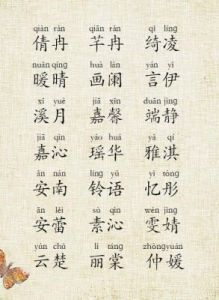 qiàn rǎn qiān rǎn qǐ líng
倩冉 芊冉 绮凌
nuǎn qíng huà lán yán yī
暖晴 画阑 言伊
xī yuè jiā xīn duān jìng
溪月 嘉馨 端静
jiā qìn yáo huá yǎ qí
嘉沁 瑶华 雅淇
ān nán líng yǔ yì tóng
安南 铃语 忆彤
ān lěi sù qìn wén jìng
安蕾 素沁 雯婧
yún chǔ lì táng zhòngyuán
云楚 丽棠 仲媛